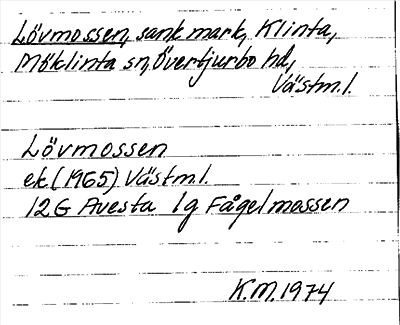 Lövmossen, sank mark, Klinta,
Möklinta sn, Övertjurbo hd,
Västm.l.
Lövmossen
ek (1965) Västm.l.
12G Avesta 1g Fågelmossen
K.M. 1974